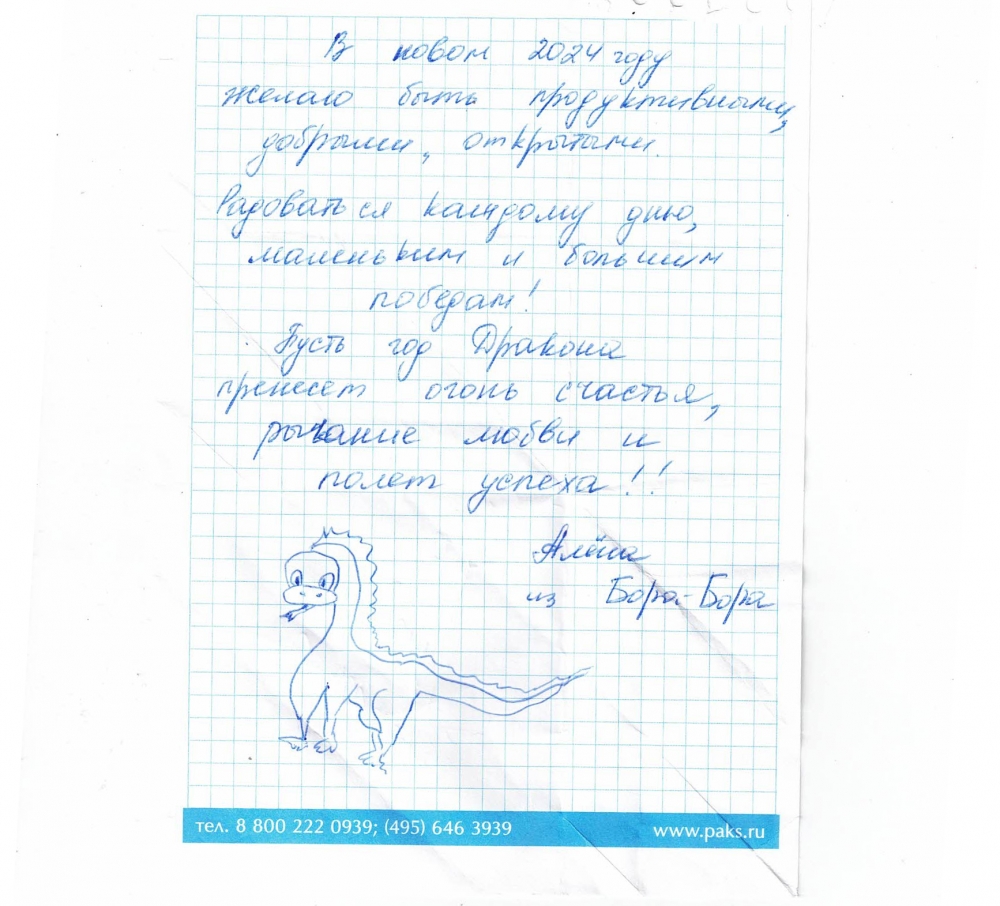 В новом 2024 году
желаю быть продуктивными,
добрыми, открытыми.
Радоваться каждому дню,
маленьким и большим
победам!
Пусть год Дракона
принесет огонь счастья,
рычание любви и
полет успеха!!
Алёна
из Бора-Бора
тел. 8 800 222 0939; (495) 646 3939
www.paks.ru